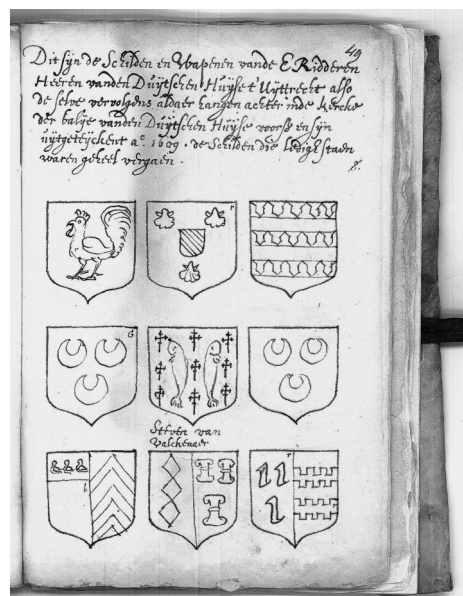 49
Dit sijn de Schilden en Wapenen vande E. Ridderen
Heeren vanden Duÿtschen Huÿse t' Uÿttrecht also
de selve vervolgens aldaer hangen achter inde kercke
der balije vanden Duÿtschen Huÿse voorss ensijn
uÿtgeteÿckent aº. 1609. de Schilden die ledigh staen
waren geheel vergaen.
r
G
Steven van
Valckenaer
b
r